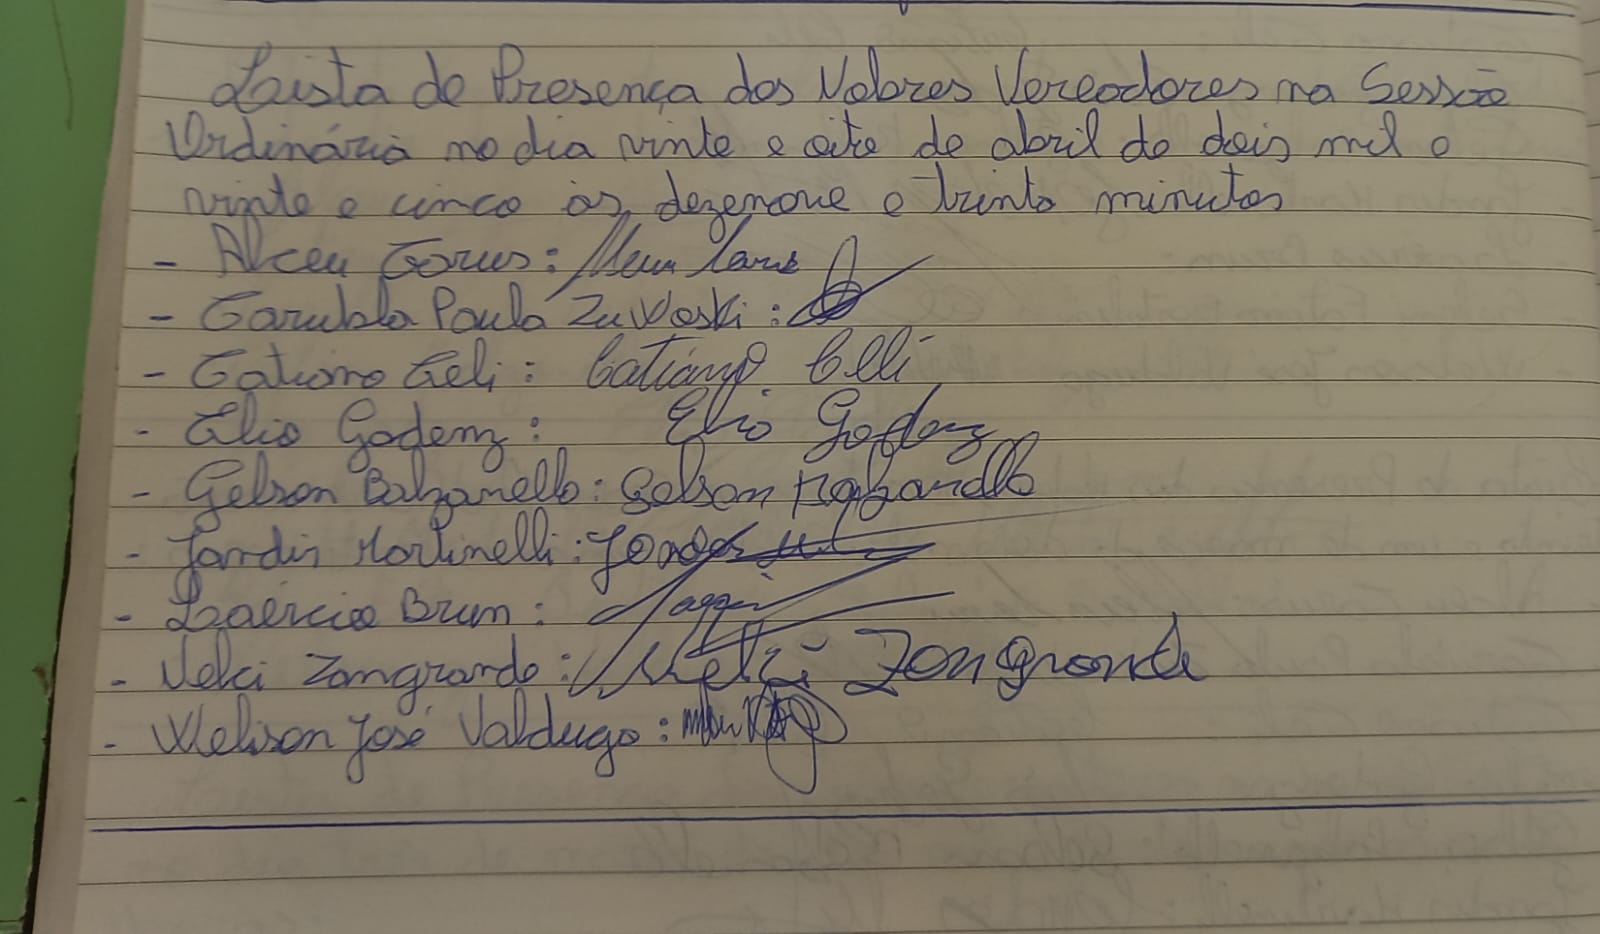 Lista de Presença dos Nobres Vereadores na Sessão
Ordinária no dia vinte e oito de abril de dois mil e
vinte e cinco às dezenove e trinta minutos
- Alceu :
- Paula :
- Catiano Celi : Catiano Celli
- Elio Godenz : Elio Godenz
- Gelson Balzanello : Gelson
- Jandir Martinelli :
- Laercio Brun :
- Nelci Zangrande : Nelci Zongrande
- Welison José Valdugo :